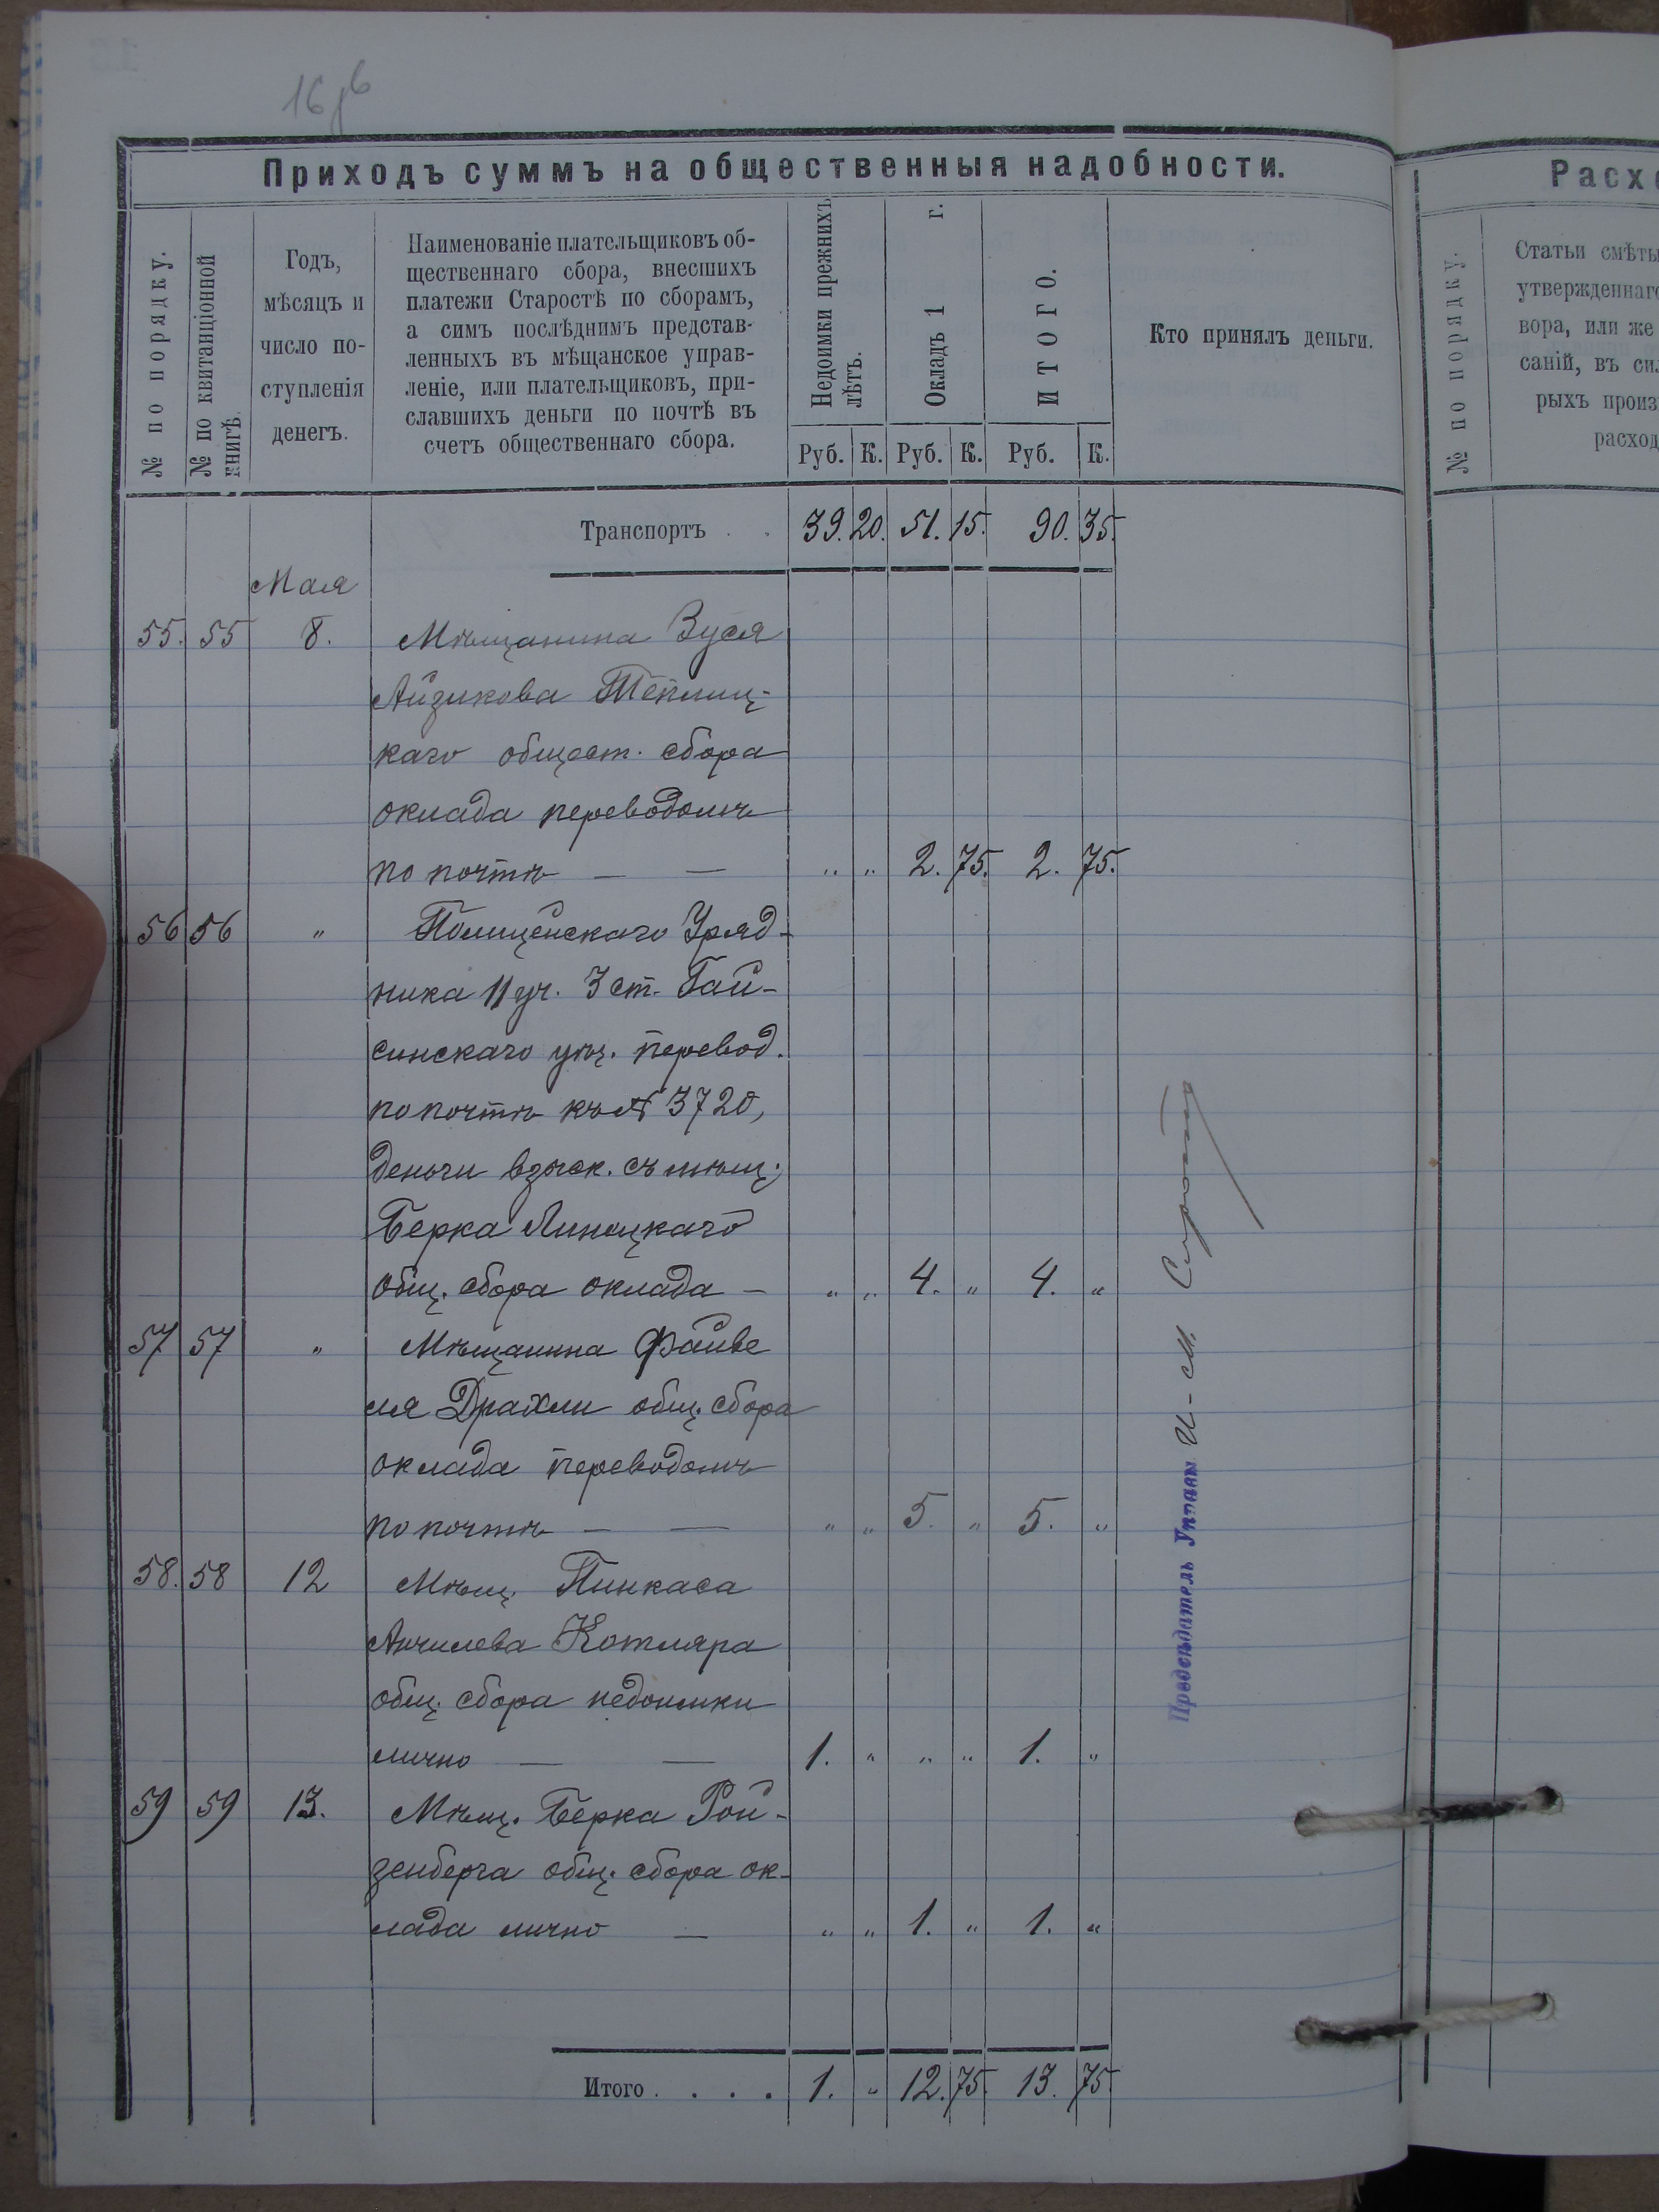 16 об
Приходъ суммъ на общественныя надобности.
№ по порядку.
№ по квитанціонной
книгѣ.
Годъ,
мѣсяцъ и
число по-
ступленія
денегъ.
Наименованіе плательщиковъ об-
щественнаго сбора, внесшихъ
платежи Старостѣ по сборамъ,
а симъ послѣднимъ представ-
ленныхъ въ мѣщанское управ-
леніе, или плательщиковъ, при-
славшихъ деньги по почтѣ въ
счетъ общественнаго сбора.
Недоимки прежнихъ
лѣтъ.
Окладъ 1 г.
ИТОГО.
Кто принялъ деньги.
Руб. К. Руб. К. Руб. К.
Транспортъ . . 39. 20. 51. 15. 90. 35.
Мая
55. 55 8. Мѣщанина Зуся
Айзикова Теплиц-
каго общест. сбора
оклада переводомъ
по почтѣ — — „ „ 2. 75. 2. 75.
56 56 „ Полицейскаго Уряд-
ника 11 уч. 3 ст. Гай-
синскаго уѣз. перевод.
по почтѣ къ № 3720,
деньги взыск. съ мѣщ.
Берка Липецкаго
общ. сбора оклада — „ „ 4. „ 4. „
57 57 „ Мѣщанина Файве
ля Драхли общ. сбора
оклада переводомъ
по почтѣ — — „ „ 5. „ 5. „
58. 58 12 Мѣщ. Пинкаса
Анчилева Котляра
общ. сбора недоимки
лично — — 1. „ „ „ 1. „
59 59 13. Мѣщ. Берка Рой-
зенберга общ. сбора ок-
лада лично — „ „ 1. „ 1. „
Итого . . . . 1. „ 12. 75. 13. 75.
Предсѣдатель Управы И-М.
Расх
№ по порядку.
Статьи смѣты
утвержденнаго
вора, или же
саній, въ сил
рыхъ произ
расход